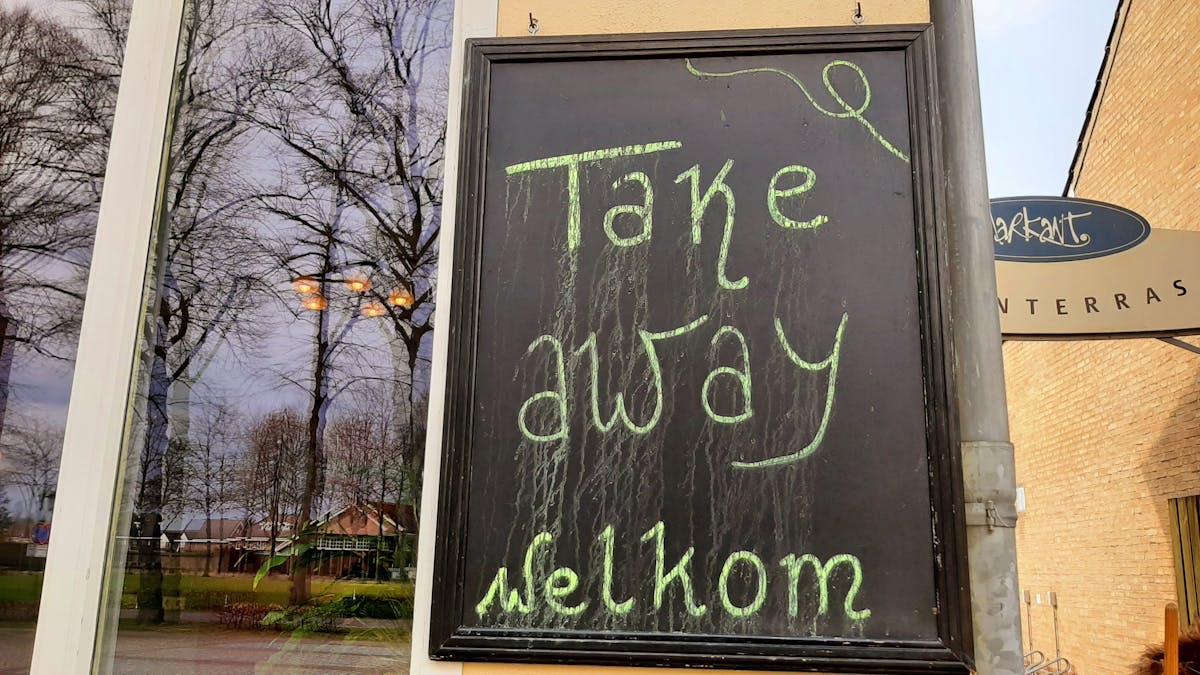 Take
away
welkom
arkant.
NTERRAS